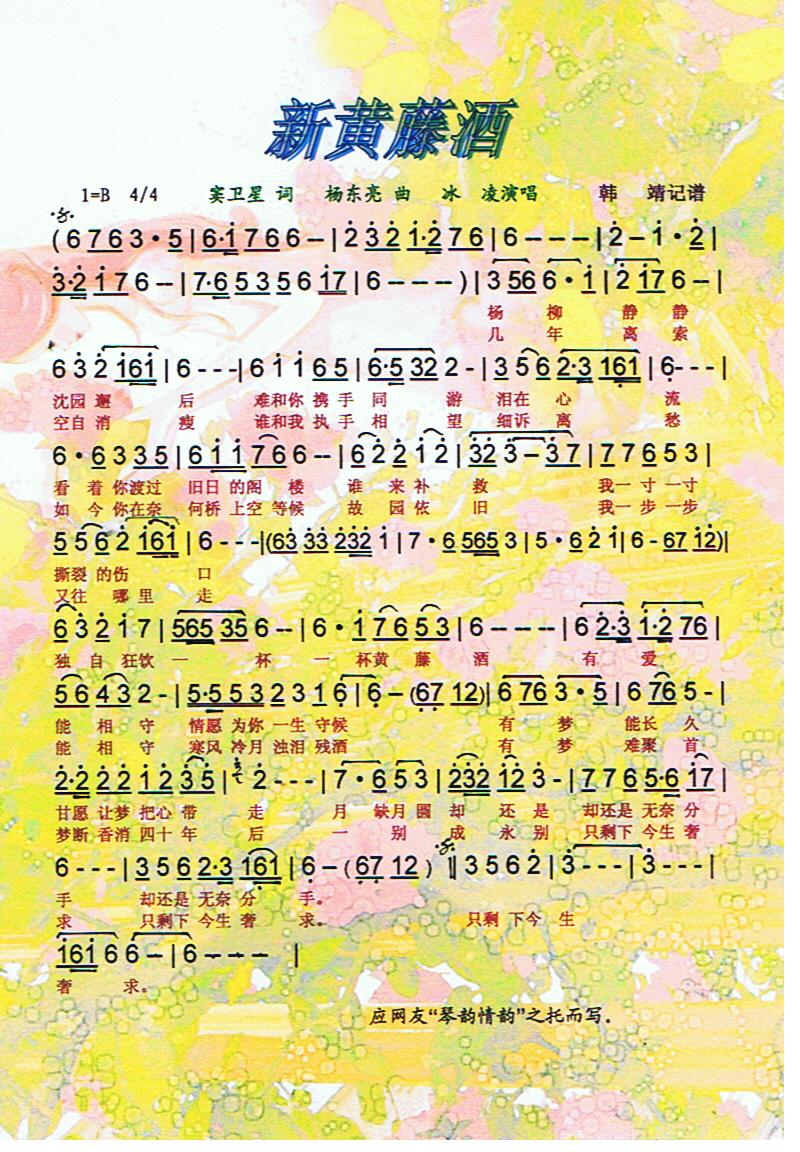 新黄藤酒
1=B 4/4 窦卫星 词 杨东亮 曲 冰 凌演唱 韩 靖记谱
(6 7 6 3·5|6·i 7 6 6 --|2̇ 3̇ 2̇ i·2̇ 7 6|6 ---|2̇ - i·2̇|
3̇·2̇ i 7 6 --|7·6 5 3 5 6 i7|6 ---)|3 56 6·i|2̇ i7 6 --|
杨 柳 静 静
几 年 离 索
6 3̇ 2̇ i6i|6 ---|6 i i 6 5|6·5 32 2 -|3 5 6 2·3 161|6---|
沈园 邂 后 难和你 携 手 同 游 泪在 心 流
空自 消 瘦 谁和我 执 手 相 望 细诉 离 愁
6·6 3 3 5|6 i i 7 6 6 --|6 2̇ 2̇ i 2̇|3̇2̇ 3̇ - 3̇ 7|7 7 6 5 3|
看 着 你渡过 旧日 的阁 楼 谁 来 补 救 我一 寸 一寸
如 今 你在奈 何桥 上空 等候 故 园 依 旧 我一 步 一步
5 5 6 2̇ i6i|6 ---|(63̇ 3̇3̇ 2̇3̇2̇ i|7·6 565 3|5·6 2̇ i|6 - 67 i2̇)|
撕裂 的伤 口
又往 哪 里 走
6 3̇ 2̇ i 7|565 35 6 --|6·i 7 6 5 3|6 ---|6 2̇·3̇ i·2̇ 76|
独 自 狂饮 一 杯 一 杯黄 藤 酒 有 爱
5 6 4 3 2 -|5·5 5 3 2 3 1 6|6 - (67 12)|6 76 3·5|6 76 5 -|
能 相 守 情愿 为你 一生 守候 有 梦 能长 久
能 相 守 寒风 冷月 浊泪 残酒 有 梦 难聚 首
2̇·2̇ 2̇ 2̇ i 2̇ 3̇ 5̇|2̇ ---|7·6 5 3|2̇3̇2̇ i2̇ 3 -|7 7 6 5·6 i7|
甘愿 让梦 把心 带 走 月 缺月 圆 却 还 是 却还 是 无奈 分
梦断 香消 四十 年 后 一 别 成 永 别 只剩 下 今生 奢
6 ---|3 5 6 2·3 161|6 - (67 12)‖3 5 6 2̇|3̇ ---|3̇ ---|
手 却还 是 无奈 分 手。
求 只剩 下 今生 奢 求。 只剩 下今 生
i6i 6 6 -|6 --- |
奢 求。
应网友“琴韵情韵”之托而写.